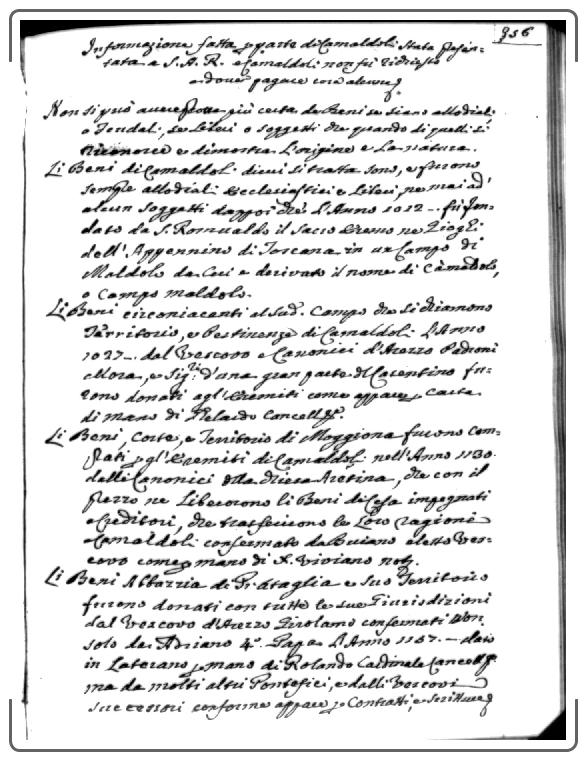 356
Informazione fatta p parte di Camaldoli stata presen-
tata a S. A. R. e Camaldoli non fu richiesto
a dover pagare cosa alcuna
Non si può avere prova più certa de Beni se siano allodiali,
o feudali, se liberi o soggetti che quando di quelli si
riconosce e dimostra l'origine e la natura.
Li Beni di Camaldoli di cui si tratta sono, e furono
sempre allodiali Ecclesiastici e liberi, ne mai ad
alcun soggetti dappoi che l'Anno 1012 - fu fon-
dato da S. Romualdo il Sacro Eremo ne Gioghi
dell'Appennino di Toscana in un Campo di
Maldolo da cui e derivato il nome di Camaldoli,
o Campo Maldolo.
Li Beni circoniacenti al sud. Campo che si chiamono
Territorio, e Pertinenze di Camaldoli l'Anno
1027 - dal Vescovo e Canonici d'Arezzo Padroni
allora, e Sig.ri d'una gran parte di Casentino fu-
rono donati agl'Eremiti come appare p Carta
di mano di Pietardo Cancell.re
Li Beni, Corte, e Territorio di Moggiona furono com-
prati p gl'Eremiti di Camaldoli nell'Anno 1130.
dalli Canonici della Chiesa Aretina, che con il
prezzo ne liberorono li Beni di Chiesa impegnati
a Creditori, che trasferirono le loro ragioni a
Camaldoli confermato da Buiano eletto Ves-
covo come p mano di S. Viviano not.
Li Beni Abbazzia di Prataglia e suo Territorio
furono donati con tutte le sue Giurisdizioni
dal Vescovo d'Arezzo Girolamo confermati non
solo da Adriano 4.º Papa l'Anno 1157. - dato
in Laterano p mano di Rolando Cardinale Cancell.re
ma da molti altri Pontefici, e dalli Vescovi
successori conforme appare p Contratti, e Scritture